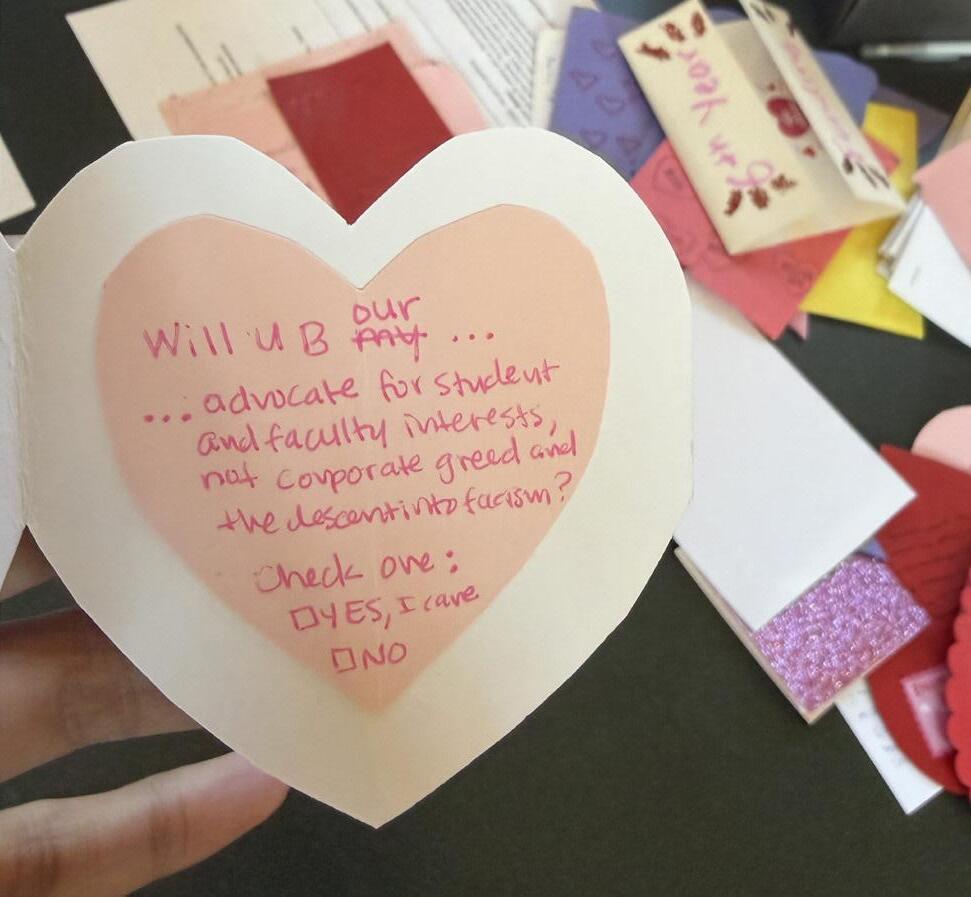 our
Will U B my ...
... advocate for student
and faculty interests,
not corporate greed and
the descent into facism?
Check one:
☐ YES, I care
☐ NO